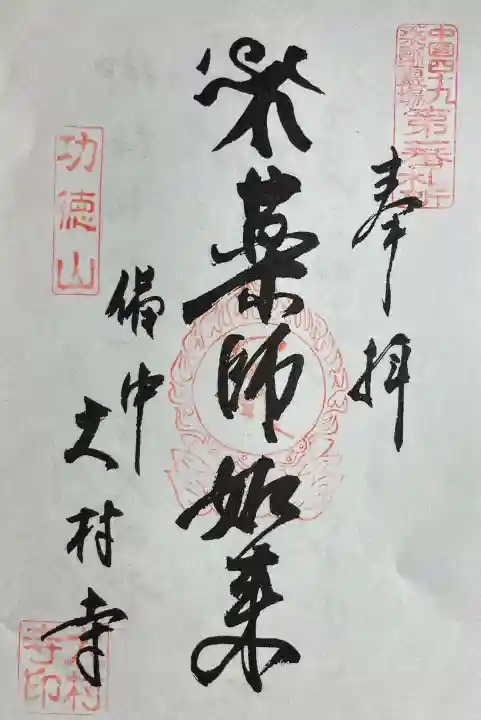 中国四十九
薬師霊場
第一番札所
奉拝
薬師如来
功徳山
備中
大村寺
大村
寺印